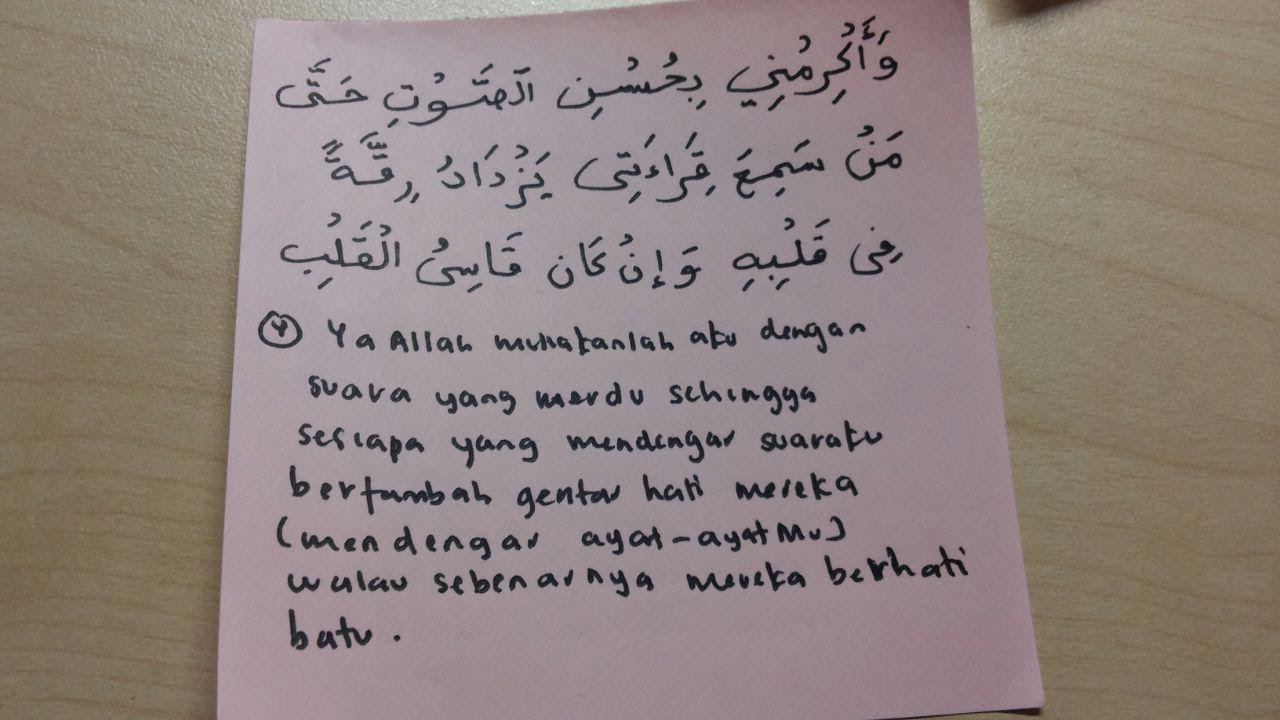 وَأَكْرِمْنِي بِحُسْنِ ٱلصَّوْتِ حَتَّى
مَنْ سَمِعَ قِرَاءَتِى يَزْدَادُ رِقَّةً
فِى قَلْبِهِ وَإِنْ كَان قَاسِىُ الْقَلْبِ
Ya Allah muliakanlah aku dengan
suara yang merdu sehingga
sesiapa yang mendengar suaraku
bertambah gentar hati mereka
(mendengar ayat-ayatMu)
walau sebenarnya mereka berhati
batu.